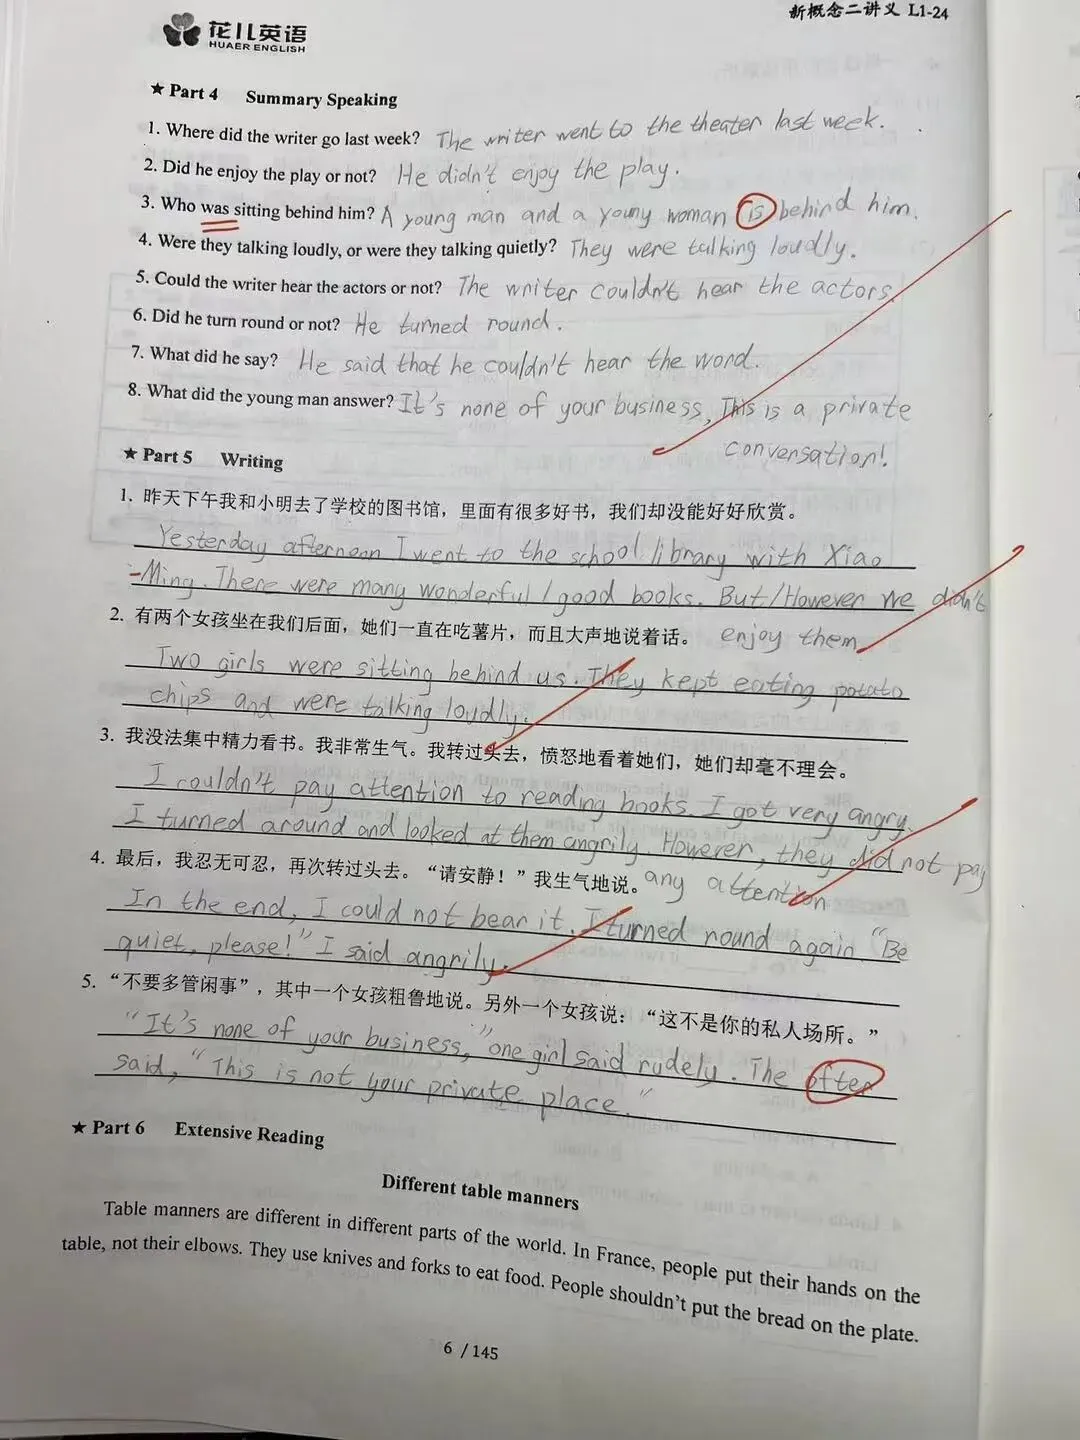 花儿英语
HUAER ENGLISH
新概念二讲义 L1-24
★ Part 4 Summary Speaking
1. Where did the writer go last week? The writer went to the theater last week.
2. Did he enjoy the play or not? He didn't enjoy the play.
3. Who was sitting behind him? A young man and a young woman is behind him.
4. Were they talking loudly, or were they talking quietly? They were talking loudly.
5. Could the writer hear the actors or not? The writer couldn't hear the actors.
6. Did he turn round or not? He turned round.
7. What did he say? He said that he couldn't hear the word.
8. What did the young man answer? It's none of your business, This is a private
conversation!
★ Part 5 Writing
1. 昨天下午我和小明去了学校的图书馆，里面有很多好书，我们却没能好好欣赏。
Yesterday afternoon I went to the school library with Xiao
-Ming. There were many wonderful / good books. But/However we didn't
enjoy them
2. 有两个女孩坐在我们后面，她们一直在吃薯片，而且大声地说着话。
Two girls were sitting behind us. They kept eating potato
chips and were talking loudly.
3. 我没法集中精力看书。我非常生气。我转过头去，愤怒地看着她们，她们却毫不理会。
I couldn't pay attention to reading books. I got very angry.
I turned around and looked at them angrily. However, they did not pay
any attention
4. 最后，我忍无可忍，再次转过头去。“请安静！”我生气地说。
In the end, I could not bear it. I turned round again. "Be
quiet, please!" I said angrily.
5. “不要多管闲事”，其中一个女孩粗鲁地说。另外一个女孩说：“这不是你的私人场所。”
"It's none of your business," one girl said rudely. The ofter
said, "This is not your private place."
★ Part 6 Extensive Reading
Different table manners
Table manners are different in different parts of the world. In France, people put their hands on the
table, not their elbows. They use knives and forks to eat food. People shouldn't put the bread on the plate.
6 / 145